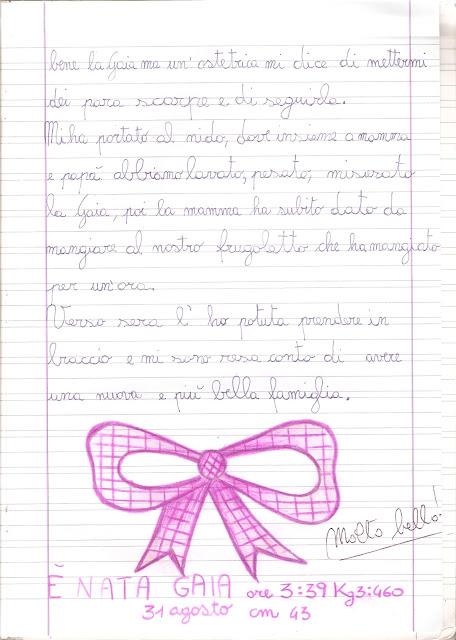 bene la Gaia ma un'ostetrica mi dice di mettermi
dei para scarpe e di seguirla.
Mi ha portato al nido, dove insieme a mamma
e papà abbiamo lavato, pesato, misurato
la Gaia, poi la mamma ha subito dato da
mangiare al nostro frugoletto che ha mangiato
per un'ora.
Verso sera l' ho potuta prendere in
braccio e mi sono resa conto di avere
una nuova e più bella famiglia.
Molto bello!
È NATA GAIA ore 3:39 Kg 3:460
31 agosto cm 43